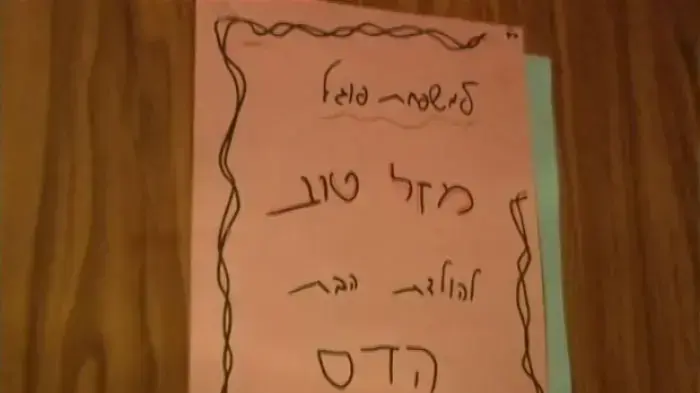 למשפחת פוגל
מזל טוב
להולדת הבת
הדס